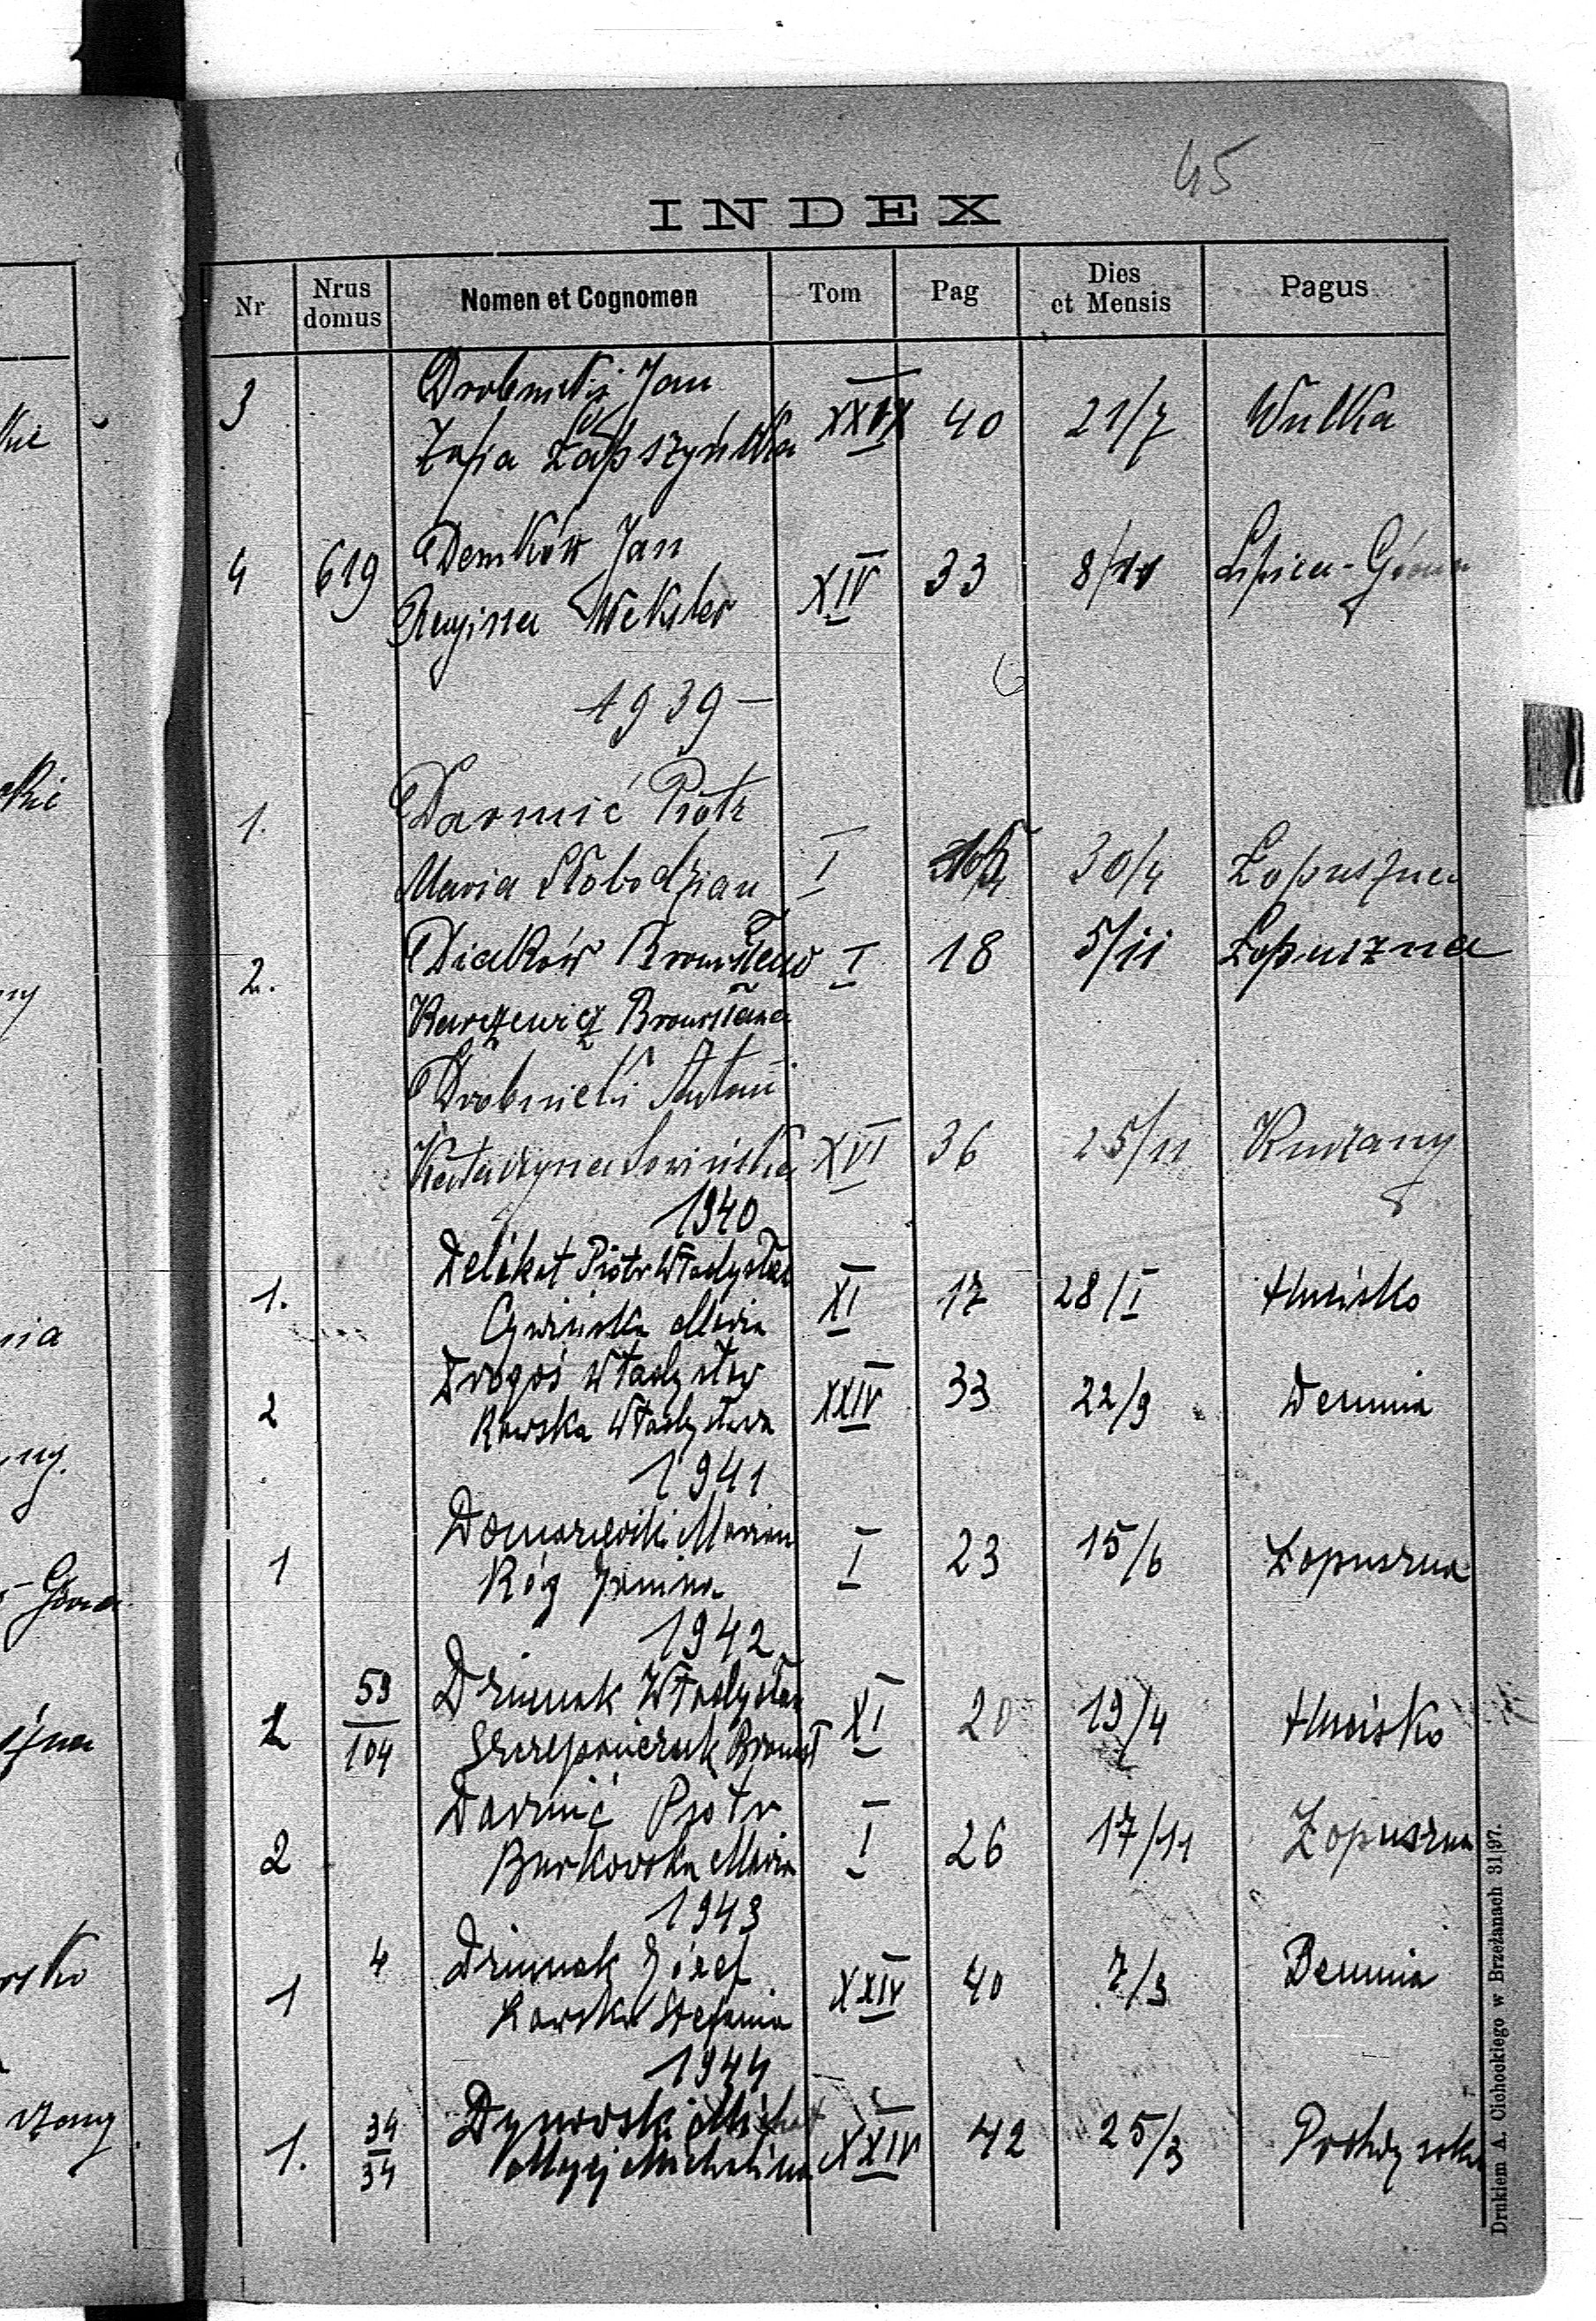 45
INDEX
Nr Nrus domus Nomen et Cognomen Tom Pag Dies et Mensis Pagus
3 Drobnicki Jan
Zofia Łapszyńska XXIX 40 21/7 Wulka
4 619 Demków Jan
Regina Weksler XIV 33 8/11 Lipica-Górna
1939 —
1. Darmić Piotr
Maria Słobodzian I 30/4 Łopuszna
2. Diaków Bronisław I 18 5/11 Łopuszna
Karczewicz Bronisława
Drobnicki Antoni
Katarzyna Sowińska XVI 36 25/11 Kunzany
1940
1. Delikat Piotr Władysław XI 17 28/I Hucisko
Cywińska Maria
2 Drogoś Władysław XXIV 33 22/9 Demnia
Rawska Władysława
1941
1 Domazewski Marian I 23 15/6 Łopuszna
Róg Janina
1942
1 59/104 Dziumak Władysław XI 20 19/4 Hucisko
Szczepańczuk Bronisł
2 Darmić Piotr I 26 17/11 Łopuszna
Burkowska Maria
1943
1 4 Dziumak Józef XXIV 40 7/3 Demnia
Rawska Stefania
1944
1. 34/34 Dynowski Michał XXIV 42 25/3
Michalina
Drukiem A. Cichockiego w Brzeżanach 31|97.